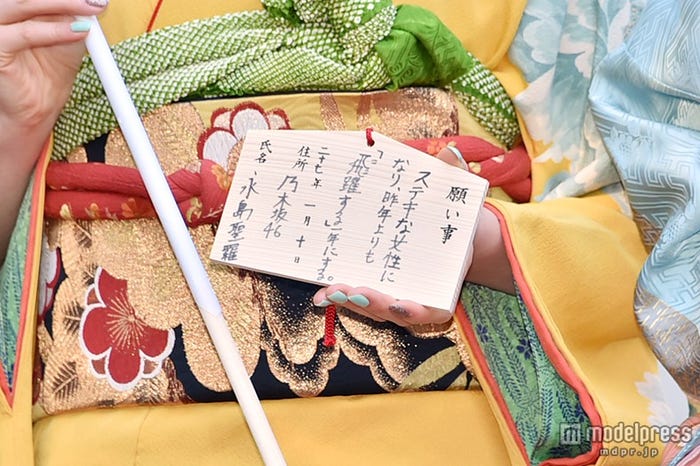 願い事
ステキな女性に
なり、昨年よりも
「飛躍する一年にする。」
二十七年 一月十日
住所 乃木坂46
氏名、永島聖羅
modelpress
mdpr.jp